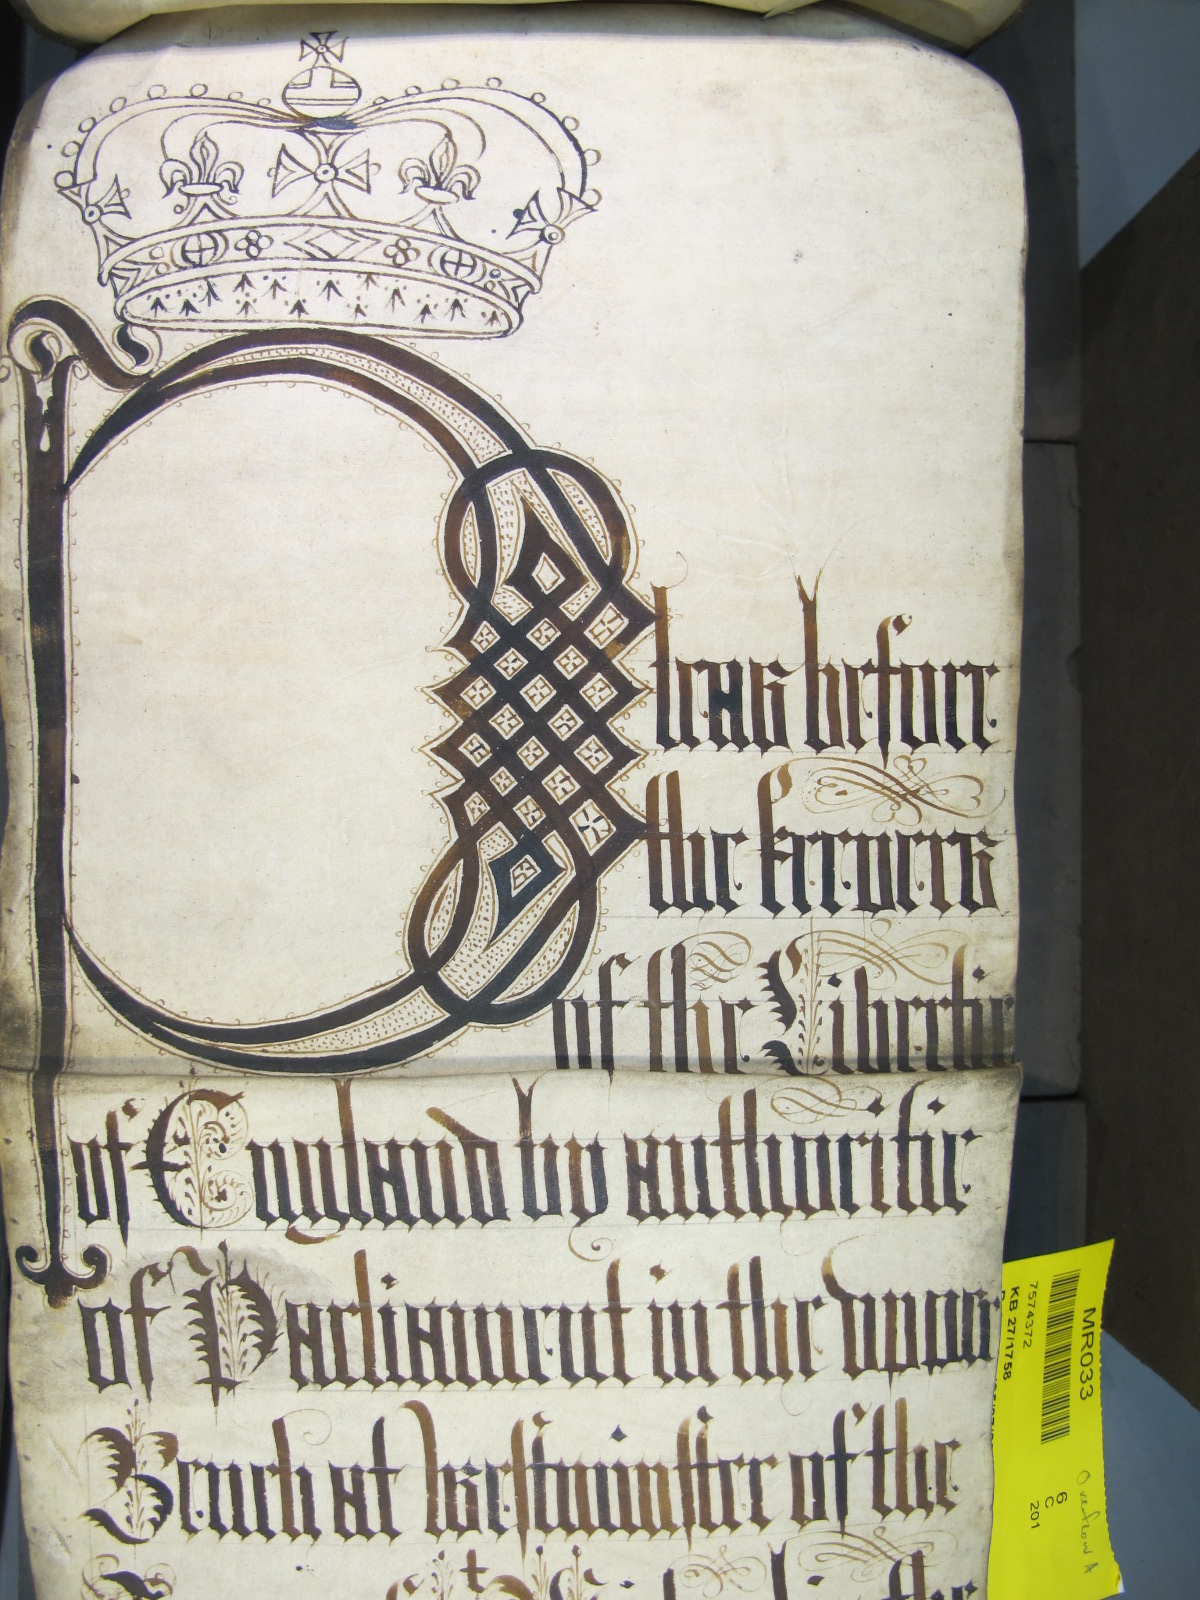 Pleas before
the keepers
of the Libertie
of England by authoritie
of Parliament in the upper
Bench at Westminster of the
MR033
7574372
KB 27/1758
6
C
201
Overflow A